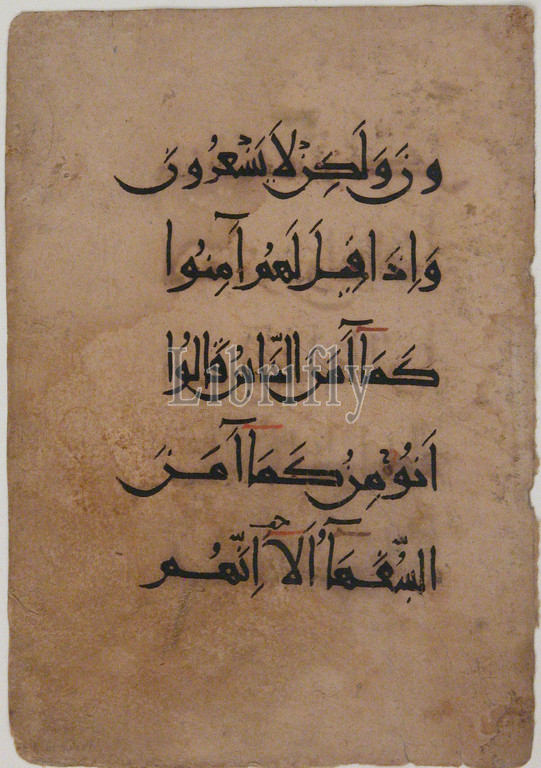 ون وَلَكِن لَا يَشْعُرُونَ
وَاِذَا قِيلَ لَهُم آمِنُوا
كَمَآ آمَنَ النَّاسُ قَالُوا
اَنُؤْمِنُ كَمَآ آمَنَ
السُّفَهَآءُ اَلَآ اِنَّهُم
Librifly